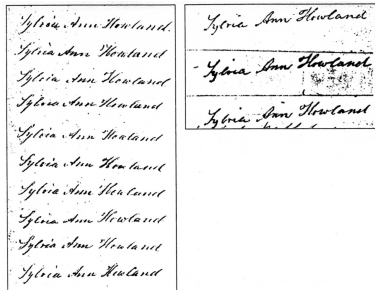 Sylvia Ann Howland.
Sylvia Ann Howland
Sylvia Ann Howland
Sylvia Ann Howland
Sylvia Ann Howland
Sylvia Ann Howland
Sylvia Ann Howland
Sylvia Ann Howland
Sylvia Ann Howland
Sylvia Ann Howland
Sylvia Ann Howland
Sylvia Ann Howland
Sylvia Ann Howland